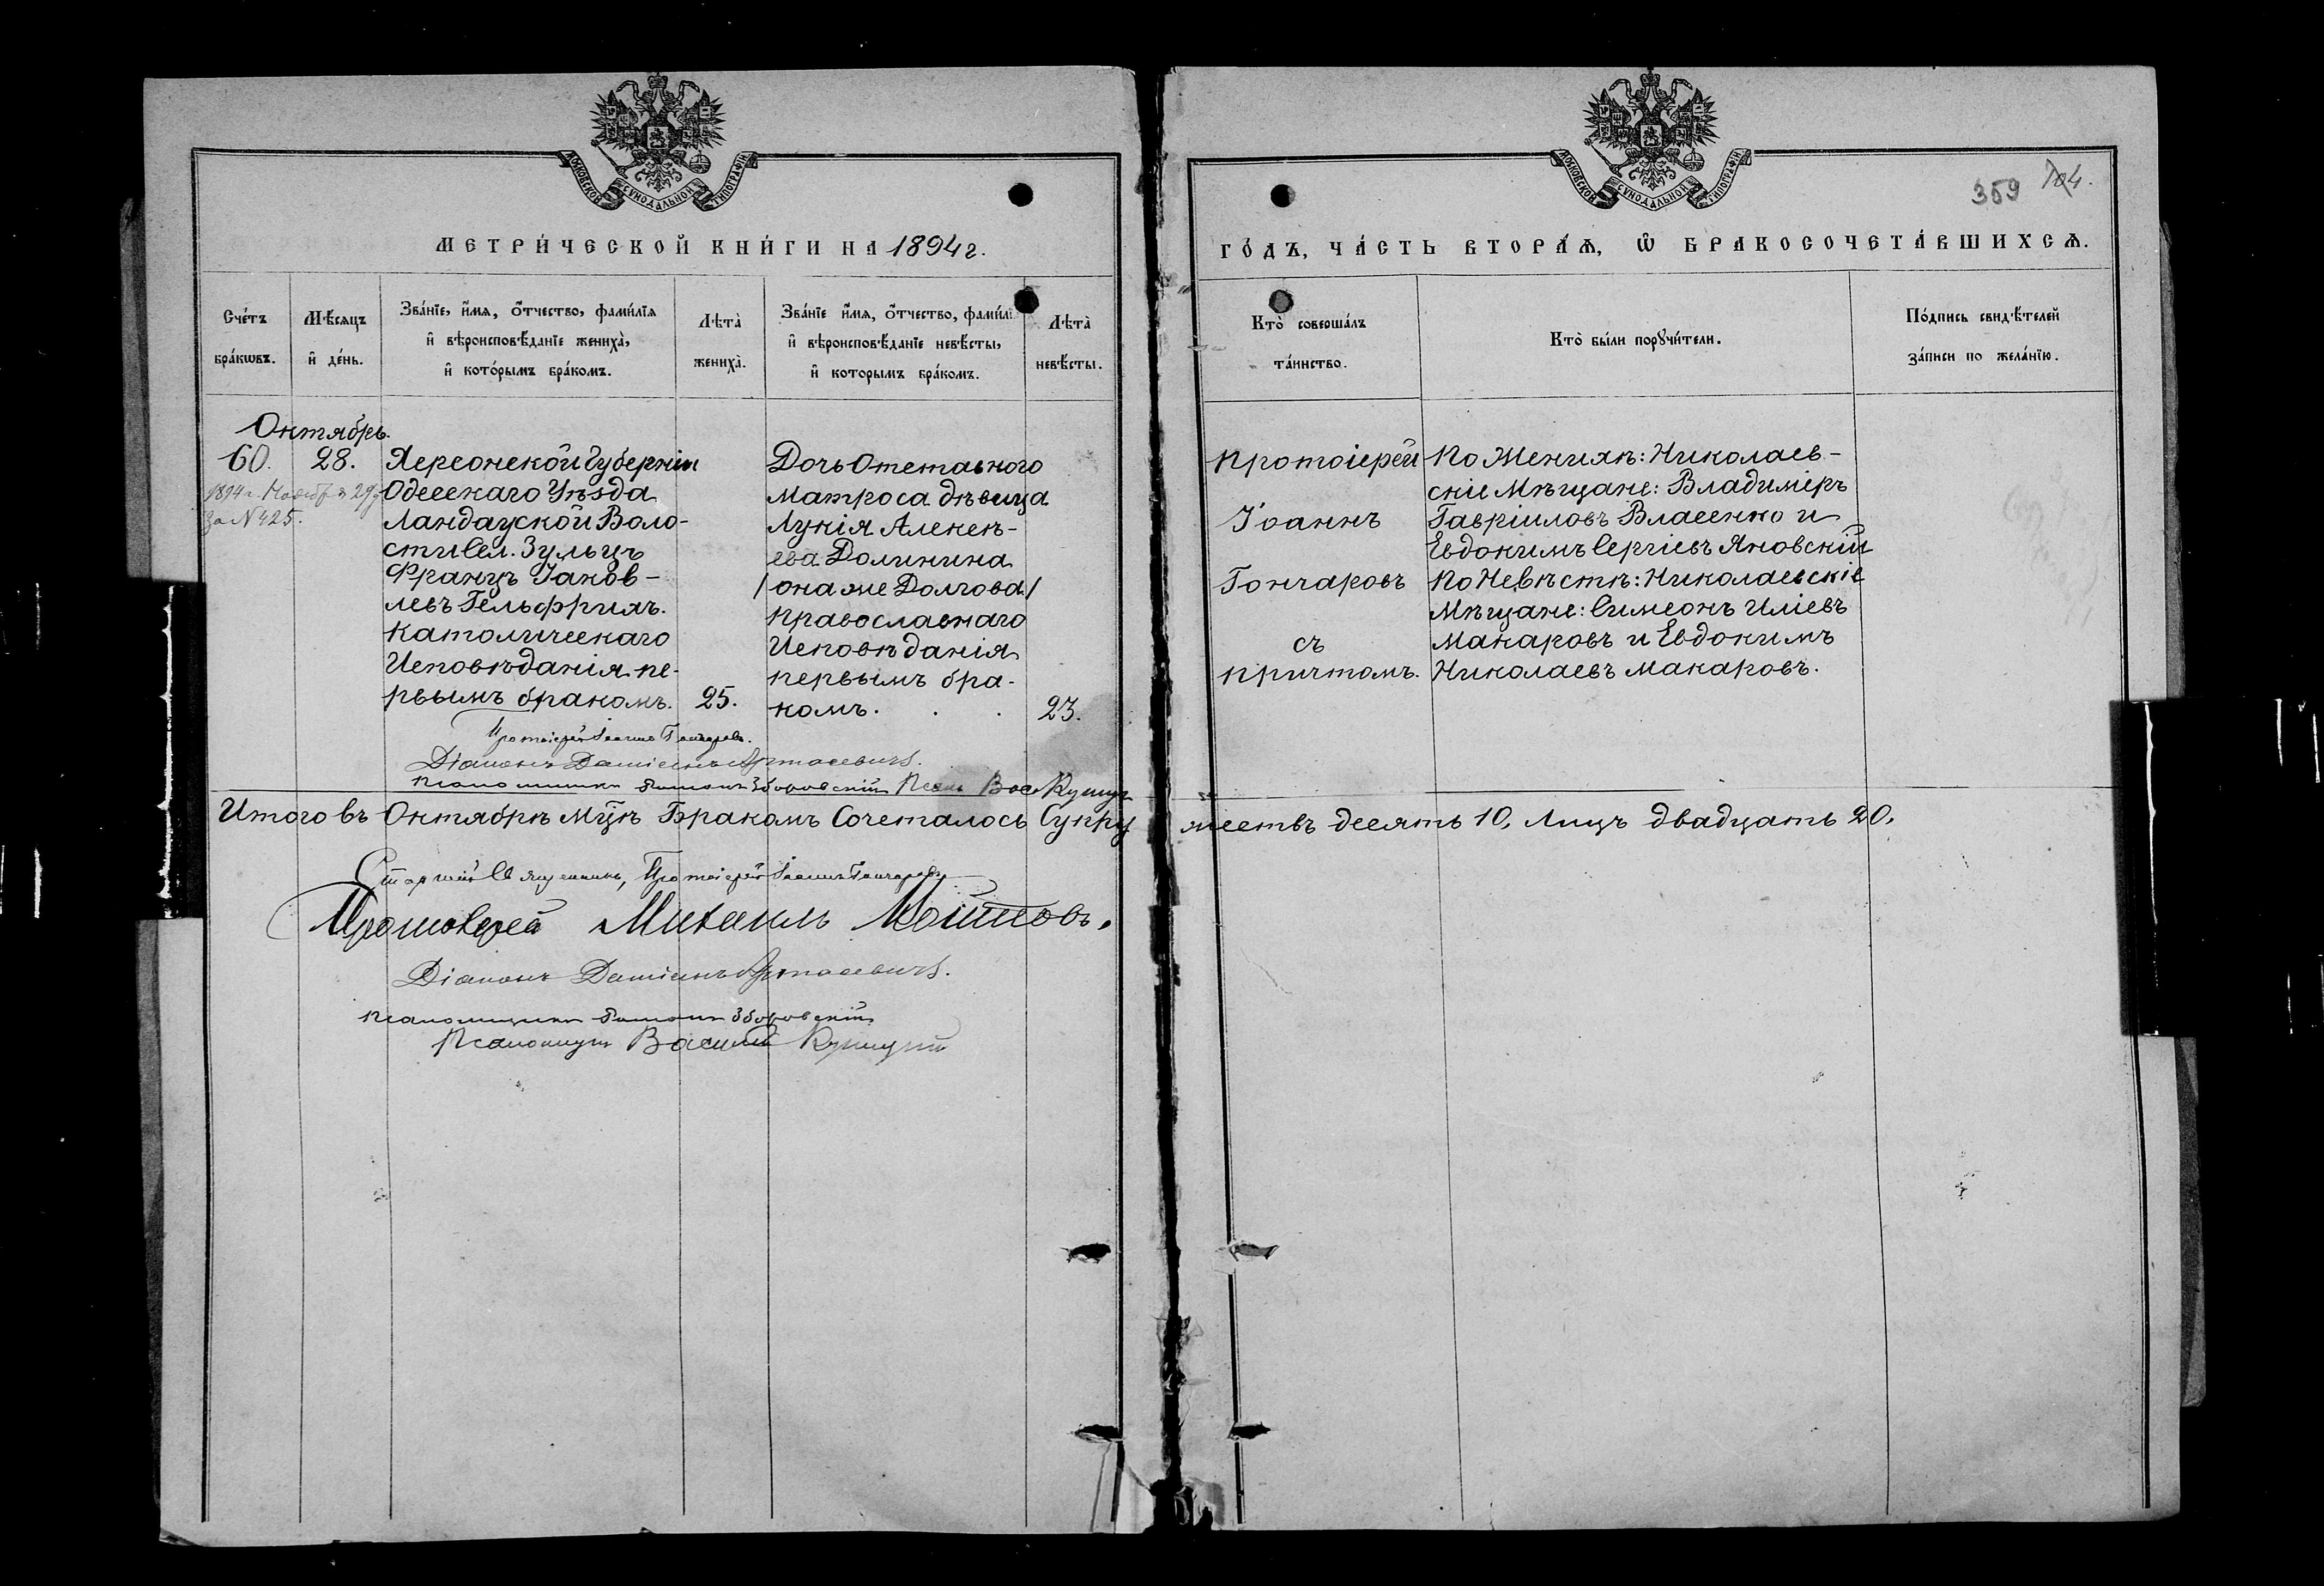 МОСКОВСКОЙ СѴНОДАЛЬНОЙ ТИПОГРАФІИ
МЕТРИ́ЧЕСКОЙ КНИ́ГИ НА 1894 г.
Сче́тъ бра́кѡвъ.
Мѣ́сяцъ и҆ де́нь.
Зва́нїе, и҆́мѧ, ѻ҆́тчество, фамї́лїѧ и҆ вѣроисповѣ́данїе жениха̀, и҆ кото́рымъ бра́комъ.
Лѣта̀ жениха̀.
Зва́нїе и҆́мѧ, ѻ҆́тчество, фамї́лї и҆ вѣроисповѣ́данїе невѣ́сты, и҆ которымъ бра́комъ.
Лѣта̀ невѣ́сты.
Октябрь.
60. 28.
1894 г. Ноябр. 29 д
за № 425.
Херсонской Губерніи
Одесскаго Уѣзда
Ландауской Воло-
сти Сел. Зульцъ
Францъ Іаков-
левъ Гельфрихъ.
Католическаго
Исповѣданія пе-
рвымъ бракомъ. 25.
Дочь Отставного
Матроса дѣвица
Лукія Алексѣ-
ева Долинина
/она же Долгова/
Православнаго
Исповѣданія
первымъ бра-
комъ. . . 23.
Протоіерей Іоаннъ Гончаровъ.
Діаконъ Даміанъ Артасевичъ.
Псаломщикъ Зборовскій Псал. Вас. Купиц
Итого въ Октябрѣ Мцѣ Бракомъ Сочеталось Супру
Старшій Священникъ, Протоіерей Іоаннъ Гончаровъ
Протоіерей Михаилъ
Діаконъ Даміанъ Артасевичъ.
Псаломщикъ Зборовскій
Псаломщикъ Василій
МОСКОВСКОЙ СѴНОДАЛЬНОЙ ТИПОГРАФІИ
359 104.
ГО́ДЪ, ЧА́СТЬ ВТОРА́Ѧ, Ѡ҆ БРАКОСОЧЕТА́ВШИХСѦ.
Кто̀ соверша́лъ та́инство.
Кто̀ бы́ли порꙋчи́тели.
По́дпись свидѣ́телей за́писи по жела́нїю.
Протоіерей
Іоаннъ
Гончаровъ
съ
причтомъ.
По Женихѣ: Николаев-
скіе Мѣщане: Владиміръ
Гавріиловъ Власенко и
Евдокимъ Сергіевъ Яновскій
По Невѣстѣ: Николаевскіе
Мѣщане: Симеонъ Иліевъ
Макаровъ и Евдокимъ
Николаевъ Макаровъ.
жествъ десять 10, Лицъ двадцать 20.